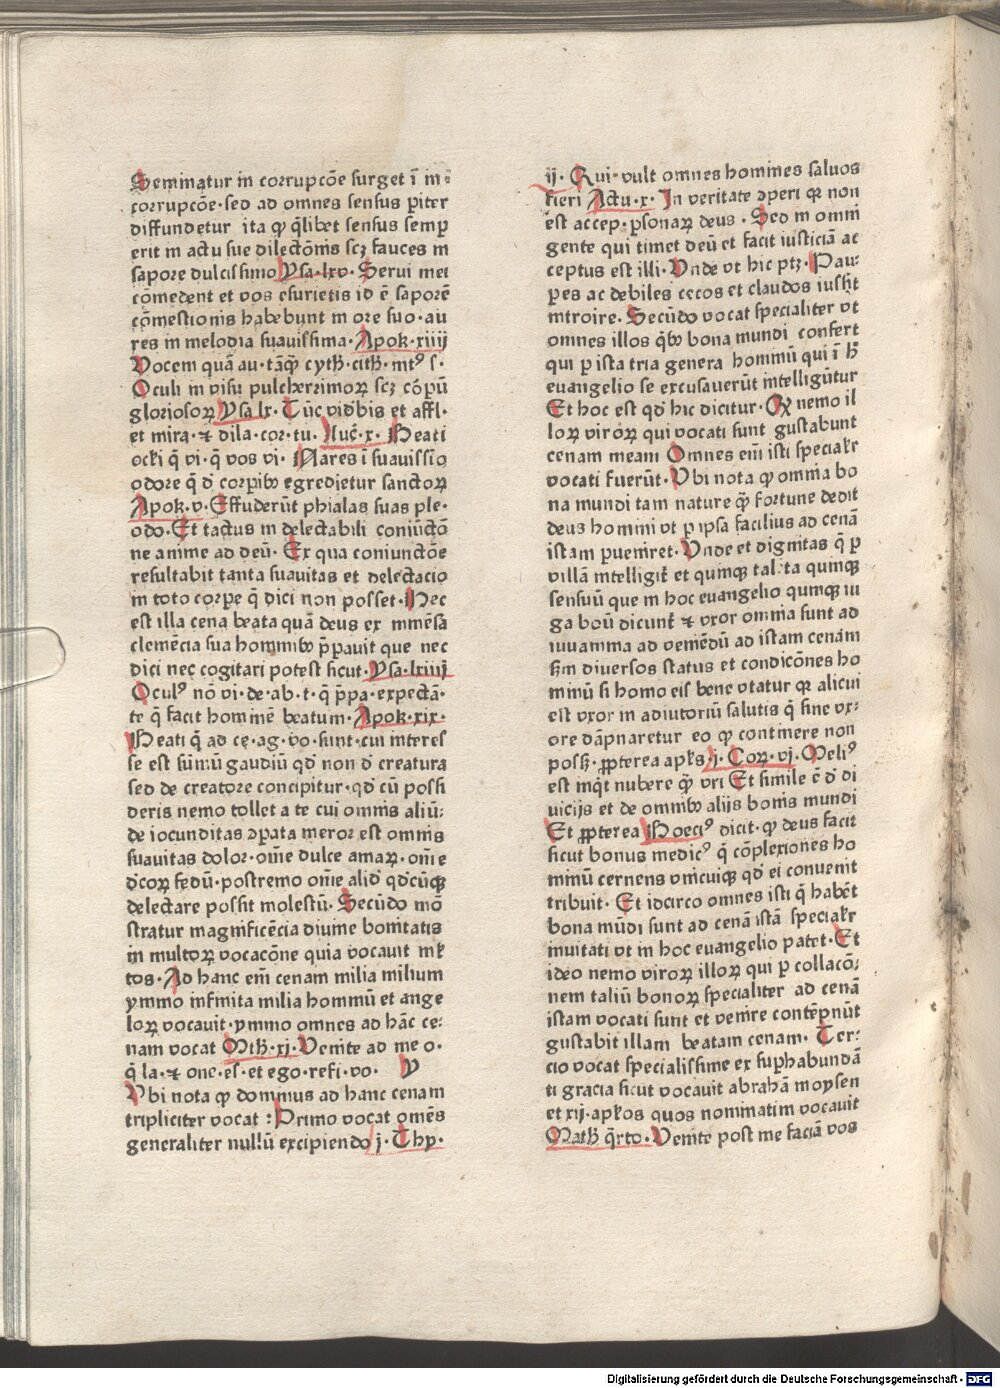 Seminatur in corrupcōe surget ī in⸗
corrupcōe·sed ad omnes sensus p̄iter
diffundetur ita ꝙ q̄libet sensus semꝑ
erit in actu sue dilectōnis scꝫ fauces in
sapore dulcissimo Ysa·lxv· Serui mei
comedent et vos esurietis id ē saporē
cōmestionis habebunt in ore suo·au
res in melodia suauissima· Apok·xiiij
Vocem quā au·tāꝙ̄ cyth̄·cith̄·mtꝰ s·
Oculi in visu pulcherrimoꝝ scꝫ cōpū
glorīosoꝝ Ysa lx· Tūc vid̄bis et affl·
et mira·⁊ dila·cor·tu· Luc̄·x· Beati
ocłi q̄ vi·q̄ vos vi· Nares ī suauissīo
odore q̄ d̄ corꝑibꝫ egredietur sanctoꝝ
Apok·v·Effuderūt phialas suas ple·
odo·Et tactus in delectabili coniūctō
ne anime ad deū· Ex qua coniunctōe
resultabit tanta suauitas et delectacio
in toto corpe q̄ dici non posset·Hec
est illa cena beata quā deus ex inmēsa
clemēcia sua hominibꝫ p̄pauit que nec
dici nec cogitari potest sicut·Ysa·lxiiij
Oculꝰ nō vi·de·ab·t·q̄ p̄pa·expectā·
te q̄ facit hominē beatum·Apok·xix·
Beati q̄ ad cę·ag·vo·sunt·cui interes
se est sūmū gaudiū qd̄ non d̄ creatura
sed de creatore concipitur·qd̄ cū possi
deris nemo tollet a te cui omnis aliū:
de iocunditas ↄpata meror est omnis
suauitas dolor·om̄e dulce amaꝝ·om̄e
d̄coꝝ fedū·postremo om̄e alid̄ qd̄cūqꝫ
delectare possit molestū· Secūdo mō
stratur magnificēcia diuine bonitatis
in multoꝝ vocacōne quia vocauit ml̄
tos·Ad hanc em̄ cenam milia milium
ymmo infinita milia hominū et ange
loꝝ vocauit·ymmo omnes ad hāc ce:
nam vocat Mth̄·xj·Venite ad me o·
q̄ la·⁊ one·es·et ego·refi·vo· V
Vbi nota ꝙ dominus ad hanc cenam
tripliciter vocat : Primo vocat omēs
generaliter nullū excipiendo j·Thy·
ij· Qui vult omnes homines saluos
fieri Actu·x· In veritate ↄperi qꝛ non
est accep·ꝑsonaꝝ deus·Sed in omni
gente qui timet deū et facit iusticiā ac
ceptus est illi·Vnde vt hic ptꝫ·Pau:
ꝑes ac debiles cecos et claudos iuss̄it
introire· Secūdo vocat specialiter vt
omnes illos q̄ibꝫ bona mundi confert
qui ꝑ ista tria genera hominū qui ī h̄
euangelio se excusauerūt intelligūtur
Et hoc est qd̄ hic dicitur· Qꝙ nemo il
loꝝ viroꝝ qui vocati sunt gustabunt
cenam meam Omnes em̄ isti specialr̄
vocati fuerūt·Vbi nota ꝙ omnia bo
na mundi tam nature ꝙ̄ fortune dedit
deus homini vt ꝑ ipsa facilius ad cenā
istam ꝑueniret·Vnde et dignitas q̄ ꝑ
villā intelligit̄ et quinqꝫ tal·ta quinqꝫ
sensuū que in hoc euangelio quinqꝫ iu
ga boū dicunt̄ ⁊ vxor omnia sunt ad
iuuamina ad veniēdū ad istam cenam
scd̄m diuersos status et condicōnes ho
minū si homo eis bene vtatur qꝛ alicui
est vxor in adiutoriū salutis q̄ sine vx:
ore dāpnaretur eo ꝙ continere non
posꝫ·ꝓpterea apl̄s·j·Coꝝ·vj·Meliꝰ
est inq̄t nubere ꝙ̄ vri Et simile ē d̄ di
uicijs et de omnibꝫ alijs bonis mundi
Et ꝓpterea Boeciꝰ dicit·ꝙ deus facit
sicut bonus medicꝰ q̄ cōplexiones ho
minū cernens vnicuiqꝫ qd̄ ei conuenit
tribuit· Et idcirco omnes isti q̄ habēt
bona mūdi sunt ad cenā istā specialr̄
inuitati vt in hoc euangelio patet·Et
ideo nemo viroꝝ illoꝝ qui ꝑ collacō:
nem taliū bonoꝝ specialiter ad cenā
istam vocati sunt et venire contēpnūt
gustabit illam beatam cenam· Ter:
cio vocat specialissime ex suꝑhabundā
ti gracia sicut vocauit abrahā moysen
et xij·apl̄os quos nominatim vocauit
Math̄ q̄rto·Venite post me faciā vos
Digitalisierung gefördert durch die Deutsche Forschungsgemeinschaft - DFG